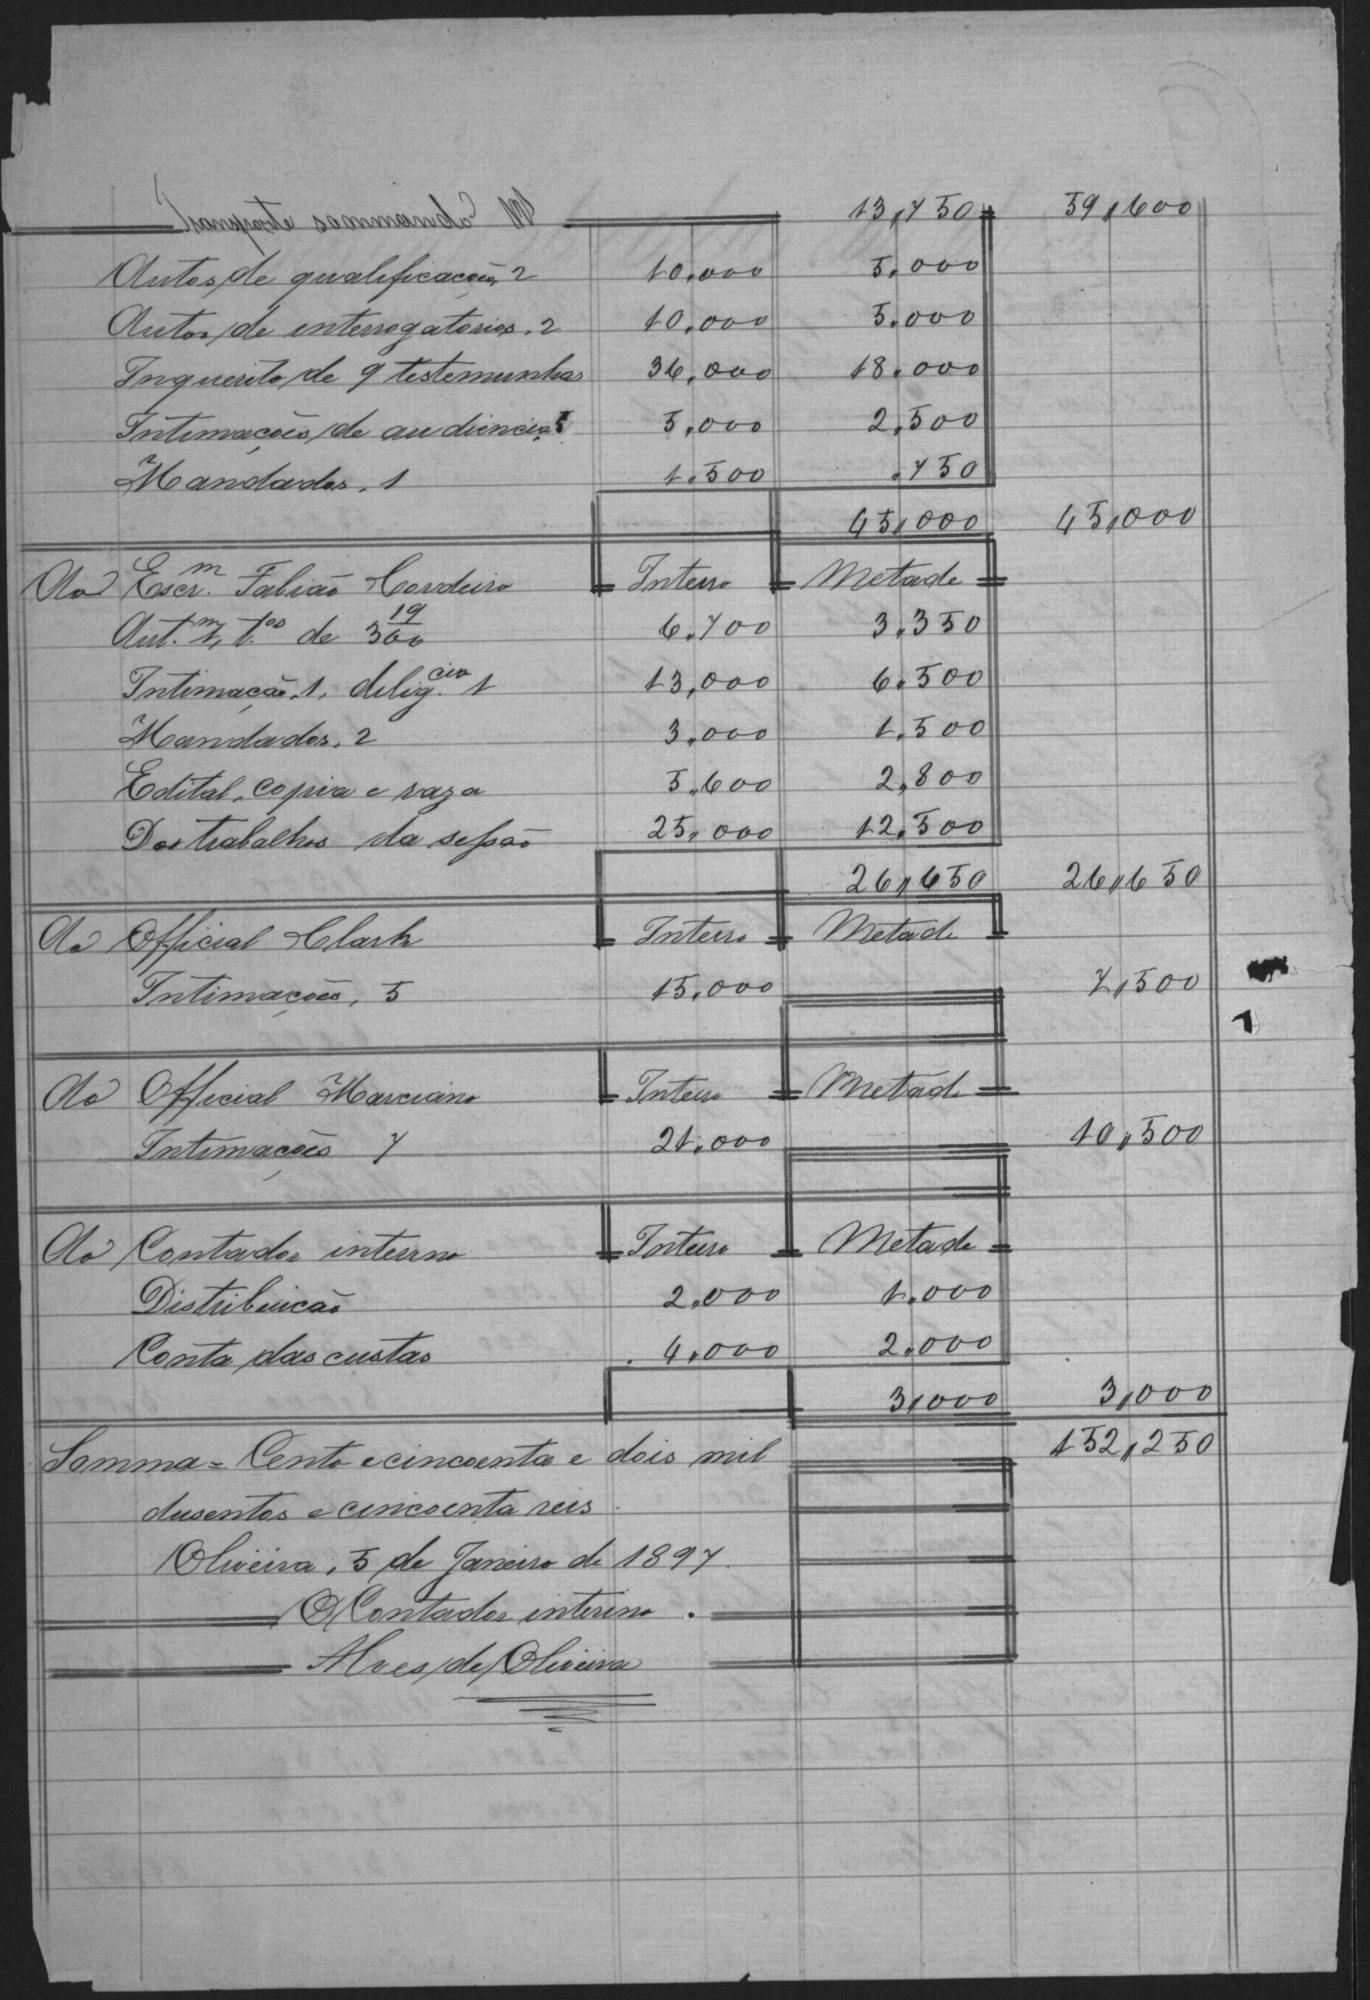 Transporte 13,750 59,600
Autos de qualificação, 2 10.000 5.000
Autos de interrogatorios, 2 10.000 5.000
Inquerito de 9 testemunhas 36,000 18.000
Intimações de audiencia 5 5,000 2,500
Mandados, 1 1.500 .750
45,000 45,000
Ao Escr.m Fabião Cordeiro Inteiro Metade
Aut.m, t.os de 300 19 6.700 3.350
Intimação, 1, delig.cia 1 13,000 6.500
Mandados, 2 3,000 1,500
Edital, copia e raza 5,600 2,800
Dos trabalhos da sessão 25,000 12,500
26,650 26,650
Ao Official Clark Inteiro Metade
Intimações, 5 15,000 7,500
Ao Official Marciano Inteiro Metade
Intimações 7 21,000 10,500
Ao Contador interno Inteiro Metade
Distribuicão 2.000 1.000
Conta das custas 4.000 2.000
3,000 3,000
Somma = Cento e cincoenta e dois mil 152,250
dusentos e cincoenta reis.
Oliveira, 5 de Janeiro de 1897
O Contador interino.
Alves de Oliveira